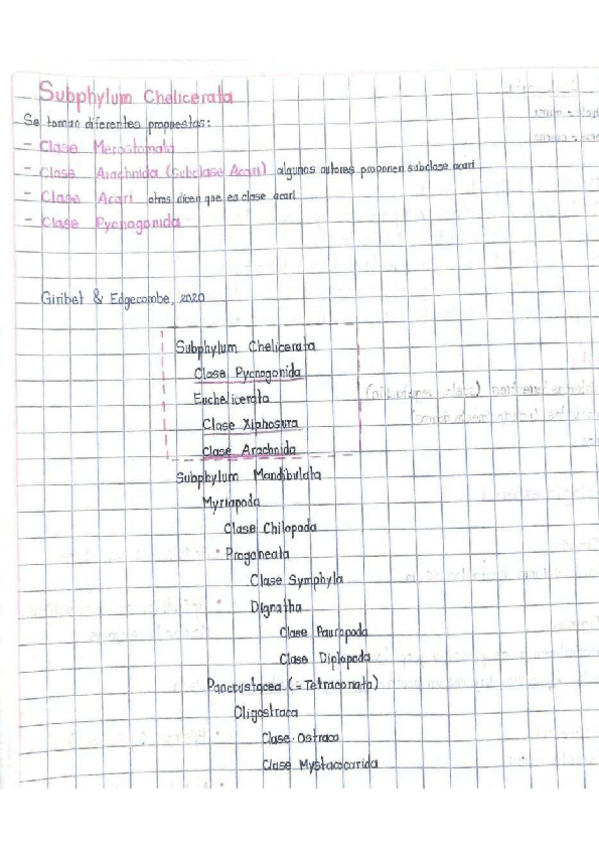 Subphylum Chelicerata
Se toman diferentes propuestas:
- Clase Merostomata
- Clase Arachnida (Subclase Acari) algunos autores proponen subclase acari
- Clase Acari otros dicen que es clase acari
- Clase Pycnogonida
Giribet & Edgecombe, 2020
Subphylum Chelicerata
Clase Pycnogonida
Euchelicerata
Clase Xiphosura
Clase Arachnida
Subphylum Mandibulata
Myriapoda
Clase Chilopoda
Progoneata
Clase Symphyla
Dignatha
Clase Pauropoda
Clase Diplopoda
Pancrustacea (= Tetraconata)
Oligostraca
Clase Ostraca
Clase Mystacocarida